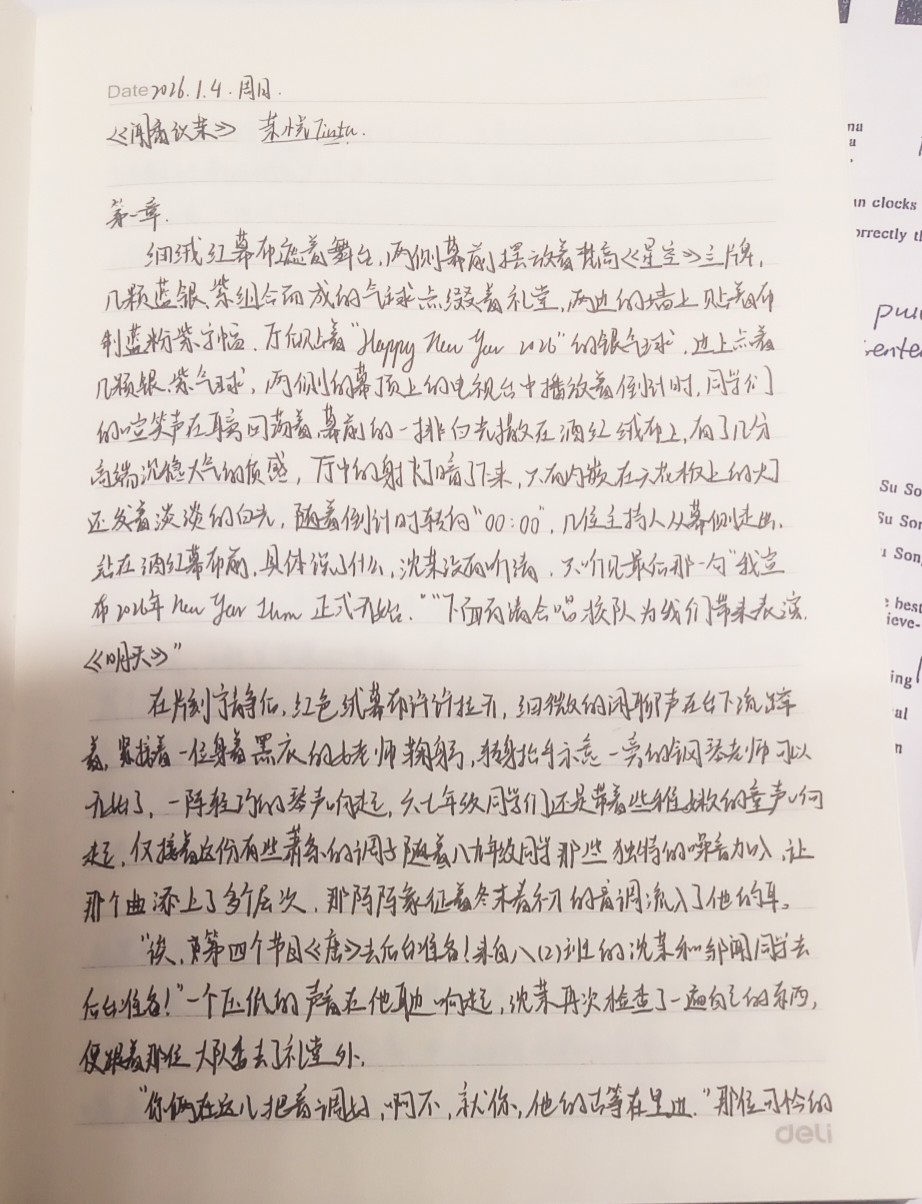 Date 2026.1.4.周日.
第一章.
细绒红幕布遮着舞台,两侧幕前摆放着梵高《星空》立牌,
几颗蓝、银、紫组合而成的气球点缀着礼堂,两边的墙上贴着布
制蓝粉紫字幅,厅后贴着"Happy New Year 2026"的银气球,边上点着
几颗银、紫气球,两侧的幕顶上的电视台中播放着倒计时,同学们
的喧笑声在耳旁回荡着,幕前的一排白光撒在酒红绒布上,有了几分
高端沉稳大气的质感,厅中的射灯暗了下来,只有内嵌在天花板上的灯
还发着淡淡的白光,随着倒计时转向"00:00",几位主持人从幕侧走出,
站在酒红幕布前,具体说了什么,沈棻没有听清,只听见最后那一句"我宣
布2026年New Year 正式开始.""下面有请合唱校队为我们带来表演.
《明天》"
在片刻宁静后,红色绒幕布许许拉开,细微的闲聊声在台下流
着,紧接着一位身着黑衣的女老师鞠躬,转身抬手示意一旁的钢琴老师可以
开始了,一阵轻巧的琴声响起,六七年级同学们还是带着些稚嫩的童声响
起,仅接着这份有些萧条的调子随着八九年级同学那些独特的嗓音加入,让
那个曲添上了多个层次,那阵阵象征着冬末春初的音调流入了他的耳。
"诶,第四个节目《唐》去后台准备!来自八(2)班的沈棻和邹闻同学去
后台准备!"一个压低的声音在他耳边响起,沈棻再次检查了一遍自己的东西,
便跟着那位大队委去了礼堂外.
"你俩在这儿把音调好,啊不,就你,他的古筝在里边."那位可怜的
deli